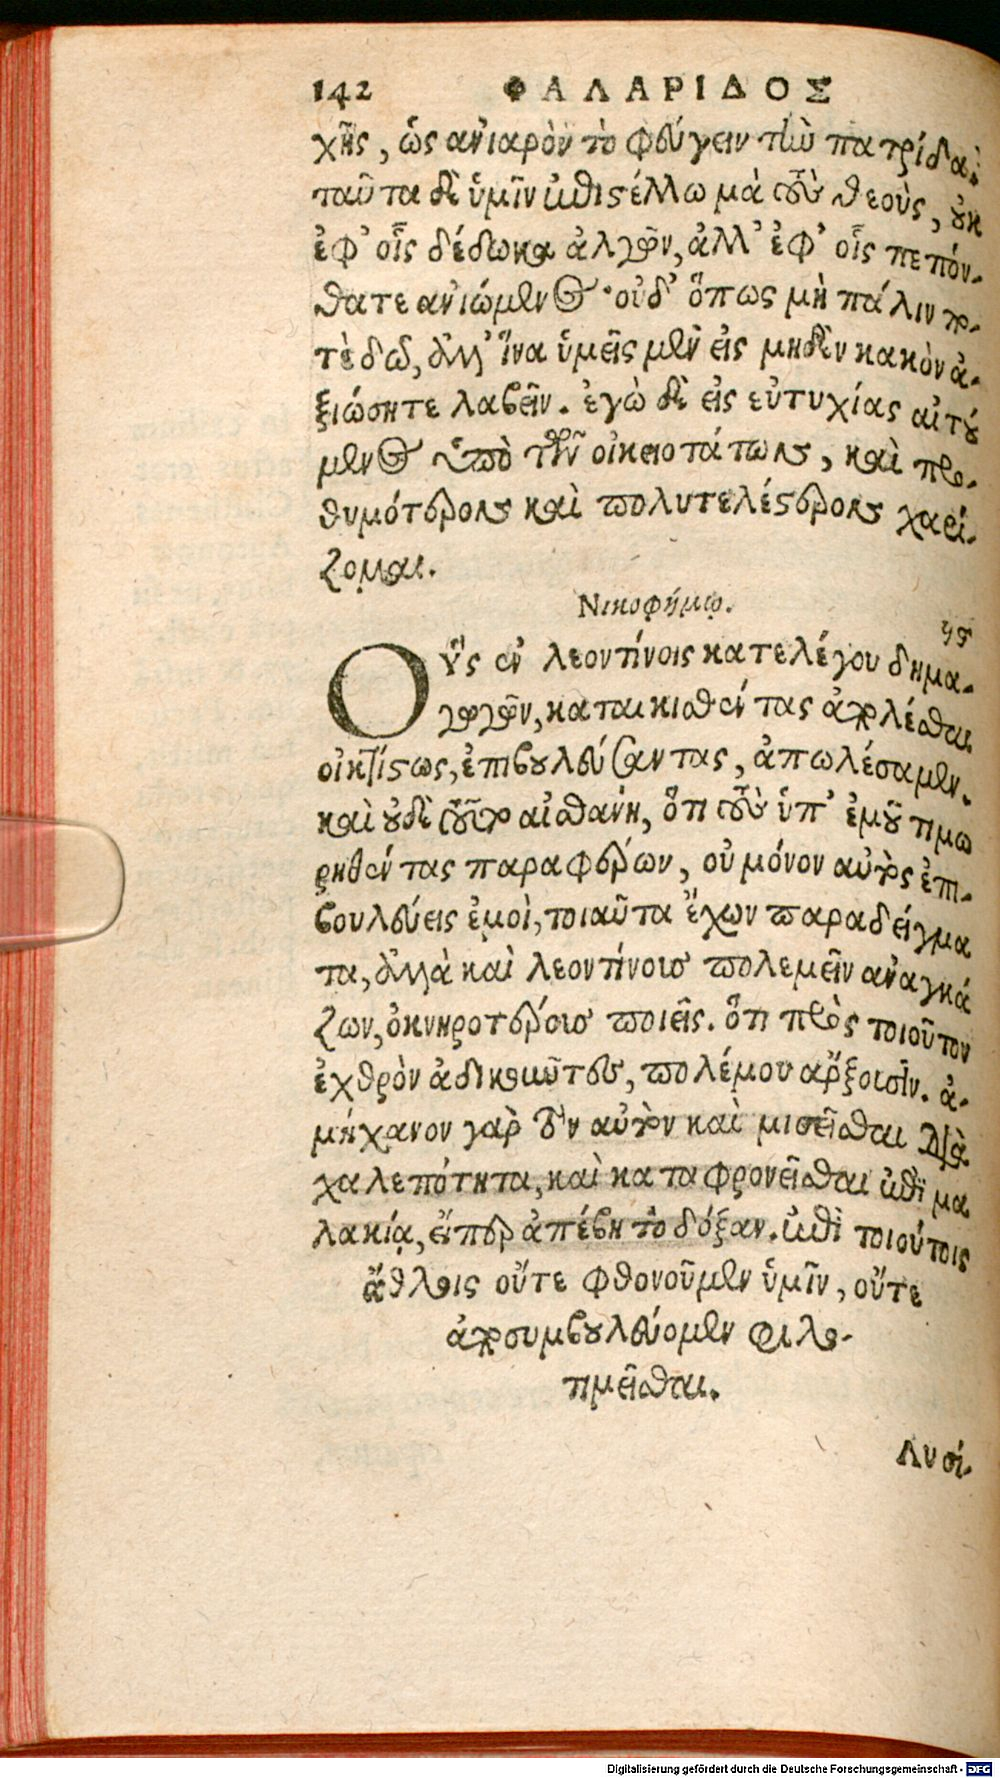 142 ΦΑΛΑΡΙΔΟΣ
χῆς, ὡς ἀνιαρὸν τὸ φεύγειν τὴν πατρίδα.
ταῦτα δὲ ὑμῖν ἐπιστέλλω μὰ τοὺς θεοὺς, οὐκ
ἐφ' οἷς δέδωκα ἀλγῶν, ἀλλ' ἐφ' οἷς πεπόν-
θατε ἀνιώμενος. οὐδ' ὅπως μὴ πάλιν
δῶ, ἀλλ' ἵνα ὑμεῖς μὲν εἰς μηδὲν κακὸν ἀ-
ξιώσητε λαβεῖν. ἐγὼ δὲ εἰς εὐτυχίας αἰτού
μενος ὑπὸ τῶν οἰκειοτάτων, καὶ προ-
θυμότερον καὶ πολυτελέστερον χαρί-
ζομαι.
Νικοφήμῳ.
Οὓς ἐν λεοντίνοις κατελέγου δημα-
γωγῶν, καταικισθέντας
οἰκτίστως, ἐπιβουλεύσαντας, ἀπωλέσαμεν.
καὶ οὐδὲ τοῦτο αἰσθάνῃ, ὅτι τοὺς ὑπ' ἐμοῦ τιμω
ρηθέντας παραφέρων, οὐ μόνον αὐτὸς ἐπι-
βουλεύεις ἐμοὶ, τοιαῦτα ἔχων παραδείγμα
τα, ἀλλὰ καὶ λεοντίνους πολεμεῖν ἀναγκά
ζων, ὀκνηροτέρους ποιεῖς. ὅτι πρὸς τοιοῦτον
ἐχθρὸν ἀδικοῦντες, πολέμου ἄρξουσιν. ἀ-
μήχανον γὰρ τὸν αὐτὸν καὶ μισεῖσθαι διὰ
χαλεπότητα, καὶ καταφρονεῖσθαι ἐπὶ μα
λακίᾳ, εἴπερ ἀπέβη τὸ δόξαν. ἐπὶ τοιούτοις
ἄθλοις οὔτε φθονοῦμεν ὑμῖν, οὔτε
συμβουλεύομεν φιλο-
τιμεῖσθαι.
Λυσί-
Digitalisierung gefördert durch die Deutsche Forschungsgemeinschaft - DFG